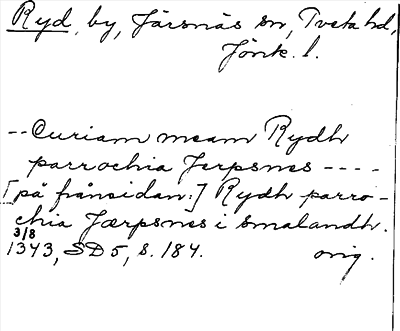 Ryd, by, Järsnäs sn, Tveta hd,
Jönk. l.
-- Curiam meam Rydh
parrochia Jerpsnes ----
[på frånsidan:] Rydh parro-
chia Jærpsnes i Smalandh.
3/8
1343, SD 5, s. 184. orig.